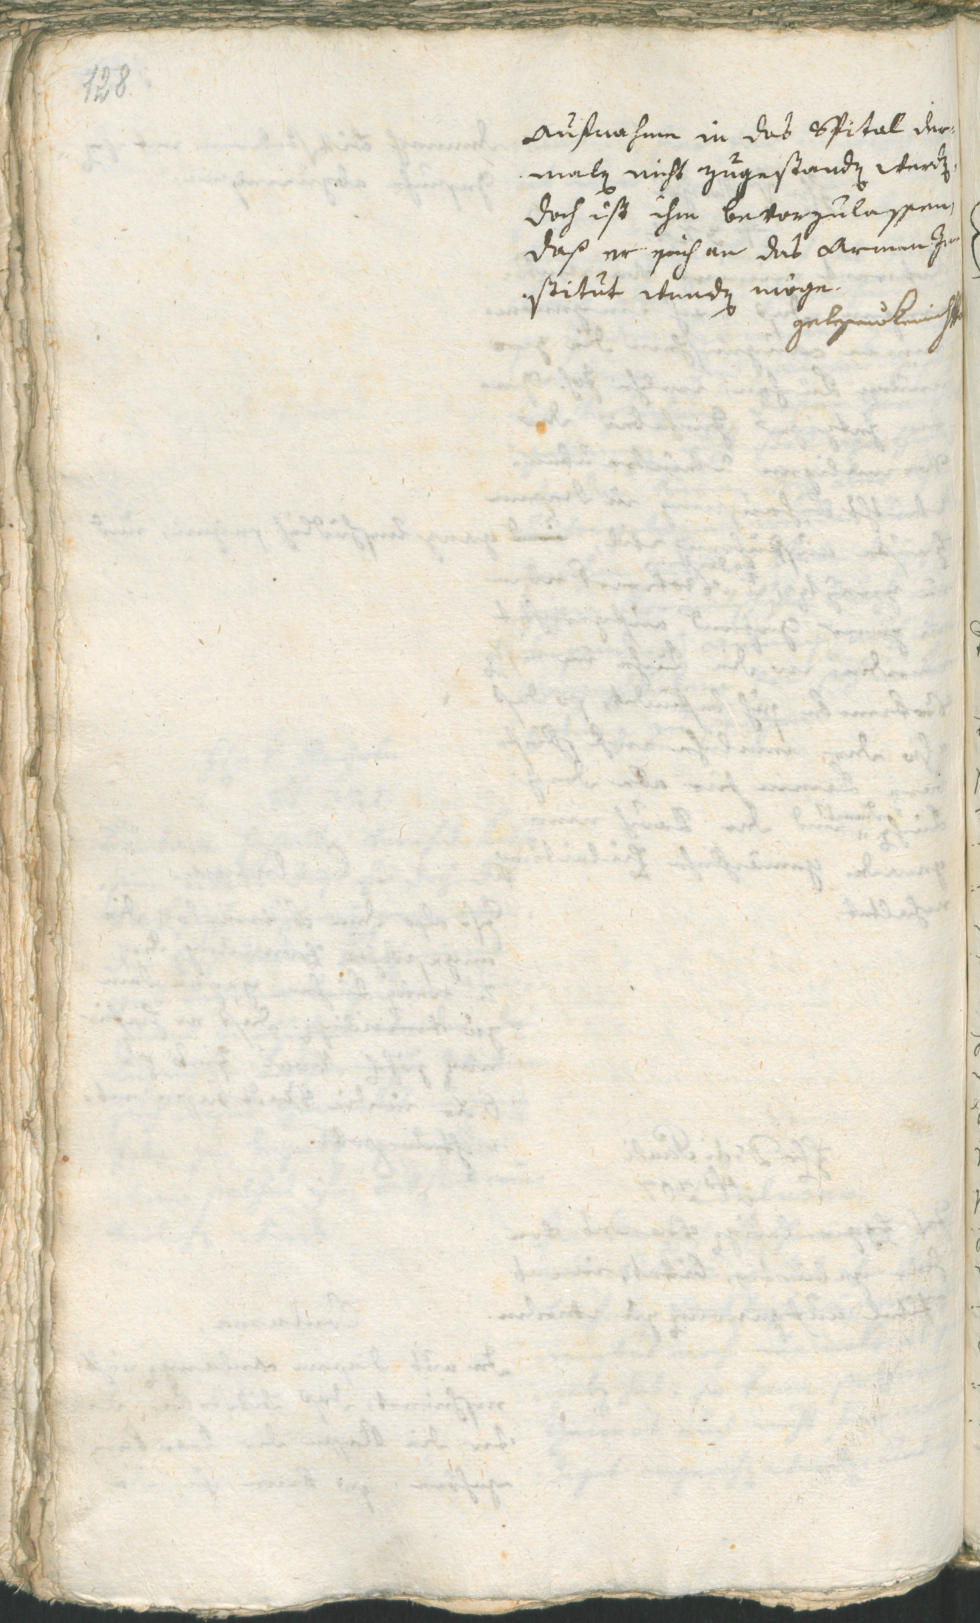 128
Aufnahme in das Spital der-
maln nicht zugestanden werden,
doch ist ihm bevorzulassen,
daß er sich an das Armen In-
stitut wenden möge.